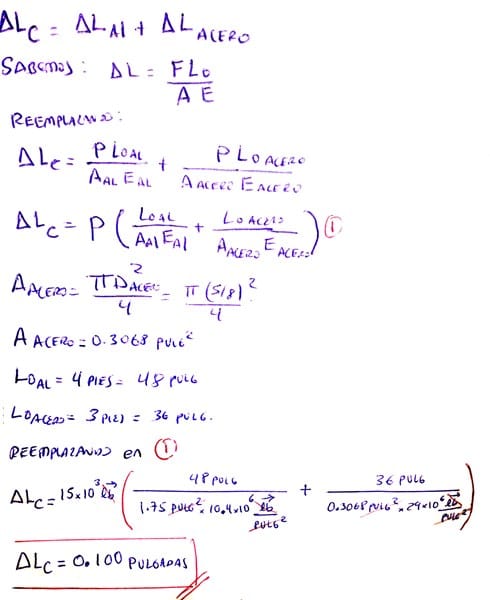 ΔLc = ΔLAl + ΔL ACERO
SABEMOS: ΔL = FLo / A E
REEMPLAZANDO:
ΔLc = P LoAL / AAL EAL + P Lo ACERO / A ACERO E ACERO
ΔLc = P ( LoAL / AAl EAl + Lo ACERO / A ACERO E ACERO ) ①
A ACERO = π D ACERO² / 4 = π (5/8)² / 4
A ACERO = 0.3068 PULG²
LoAL = 4 PIES = 48 PULG
Lo ACERO = 3 PIES = 36 PULG.
REEMPLAZANDO en ①
ΔLc = 15x10³ lb ( 48 PULG / 1.75 PULG² x 10.4x10⁶ lb/PULG² + 36 PULG / 0.3068 PULG² x 29x10⁶ lb/PULG² )
ΔLc = 0.100 PULGADAS